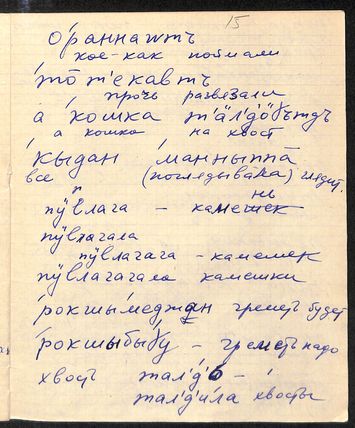 15
о́раннаттъ
кое-как поймали
то́т'екавтъ
прочь развязали
а ко́шка т'а́лг'о́бъттдъ
а кошка на хвост
кы́дан ма́нныта
все (поглядывака) глядит.
пӱвлага – камень
пӱвлагала
пӱвлагага – камешек
пӱвлагагала камешки
ро́кшы́меджан греметь будет
ро́кшыбыбу – греметь надо
хвостъ тал'д'б –
тал'д'и́ла хвосты